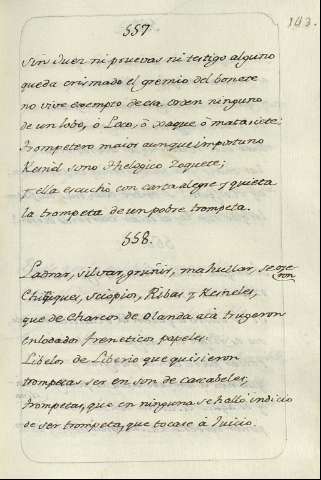 143.
557
Sin Juez ni pruevas ni testigo alguno
queda crismado el gremio del bonete
no vive exempto de esa orden ninguno
de un lobo, ò Loco, ò xaque ò matasiete:
trompetero maior aunque importuno
Keniel sono theologico Zoquete;
y ella escuchò con carta alegre y quieta
la trompeta de un pobre trompeta.
558.
Ladrar, silvar, gruñir, mahullar, se oye
ron
Chifliques, scipios, Ribas y Keneles,
que de Charcos de Olanda acà trugeron
enlodados freneticos papeles:
Libelos de Liberio que quisieron
trompetas ser en son de cascabeles;
trompetas, que en ninguna se hallò indicio
de ser trompeta, que tocase à Juicio.